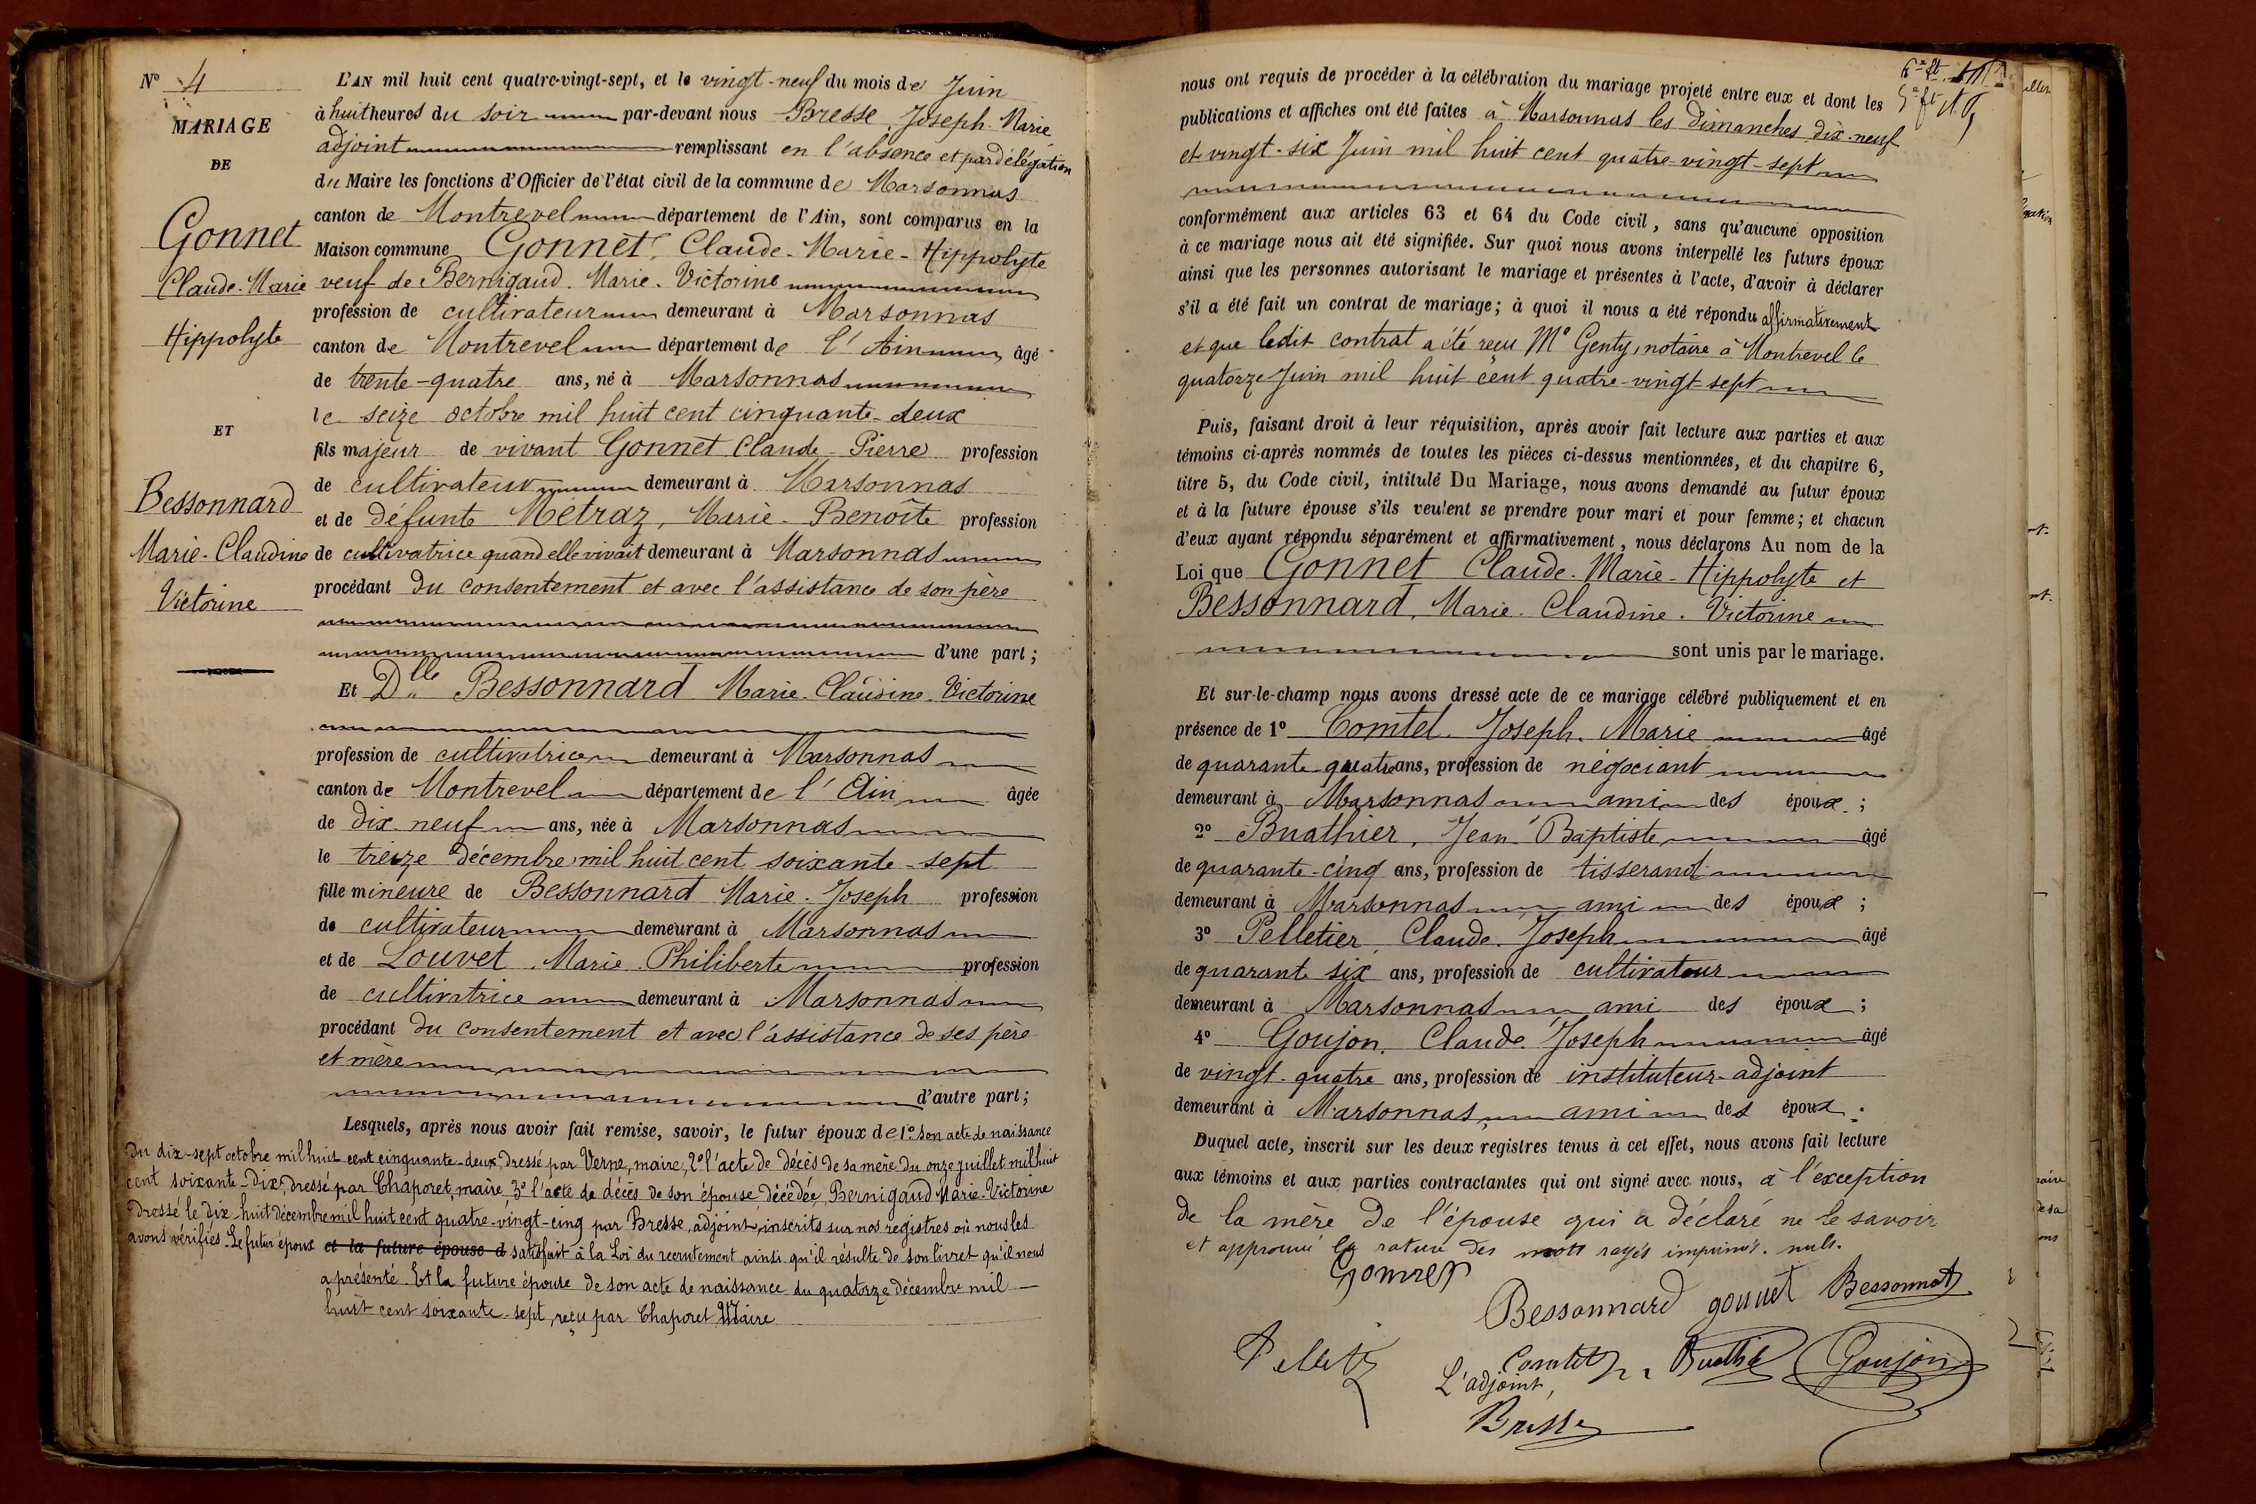 N° 4
MARIAGE
DE
Gonnet
Claude-Marie
Hippolyte
ET
Bessonnard
Marie-Claudine
Victorine
L'AN mil huit cent quatre-vingt-sept, et le vingt-neuf du mois de Juin
à huit heures du soir par-devant nous Bresse, Joseph-Marie
adjoint remplissant en l'absence et par délégation
du Maire les fonctions d'Officier de l'état civil de la commune de Marsonnas
canton de Montrevel département de l'Ain, sont comparus en la
Maison commune Gonnet, Claude-Marie-Hippolyte
veuf de Bernigaud Marie-Victorine
profession de cultivateur demeurant à Marsonnas
canton de Montrevel département de l'Ain âgé
de trente-quatre ans, né à Marsonnas
le seize octobre mil huit cent cinquante-deux
fils majeur de vivant Gonnet Claude-Pierre profession
de cultivateur demeurant à Marsonnas
et de défunte Metraz, Marie-Benoîte profession
de cultivatrice quand elle vivait demeurant à Marsonnas
procédant du consentement et avec l'assistance de son père
d'une part ;
Et Dlle Bessonnard Marie-Claudine-Victorine
profession de cultivatrice demeurant à Marsonnas
canton de Montrevel département de l'Ain âgée
de dix-neuf ans, née à Marsonnas
le treize décembre mil huit cent soixante-sept
fille mineure de Bessonnard Marie-Joseph profession
de cultivateur demeurant à Marsonnas
et de Louvet, Marie-Philiberte profession
de cultivatrice demeurant à Marsonnas
procédant du consentement et avec l'assistance de ses père
et mère
d'autre part ;
Lesquels, après nous avoir fait remise, savoir, le futur époux de 1° son acte de naissance
du dix-sept octobre mil huit cent cinquante-deux, dressé par Verne, maire, 2° l'acte de décès de sa mère du onze juillet mil huit
cent soixante-dix, dressé par Chaporet, maire, 3° l'acte de décès de son épouse décédée, Bernigaud Marie-Victorine
dressé le dix-huit décembre mil huit cent quatre-vingt-cinq par Bresse, adjoint, inscrits sur nos registres où nous les
avons vérifiés. Le futur époux et la future épouse d satisfait à la Loi du recrutement ainsi qu'il résulte de son livret qu'il nous
a présenté. Et la future épouse de son acte de naissance du quatorze décembre mil
huit cent soixante-sept, reçu par Chaporet Maire
nous ont requis de procéder à la célébration du mariage projeté entre eux et dont les
publications et affiches ont été faites à Marsonnas les Dimanches dix-neuf
et vingt-six Juin mil huit cent quatre-vingt-sept
conformément aux articles 63 et 64 du Code civil, sans qu'aucune opposition
à ce mariage nous ait été signifiée. Sur quoi nous avons interpellé les futurs époux
ainsi que les personnes autorisant le mariage et présentes à l'acte, d'avoir à déclarer
s'il a été fait un contrat de mariage ; à quoi il nous a été répondu affirmativement
et que ledit contrat a été reçu Me Genty, notaire à Montrevel le
quatorze Juin mil huit cent quatre-vingt-sept
Puis, faisant droit à leur réquisition, après avoir fait lecture aux parties et aux
témoins ci-après nommés de toutes les pièces ci-dessus mentionnées, et du chapitre 6,
titre 5, du Code civil, intitulé Du Mariage, nous avons demandé au futur époux
et à la future épouse s'ils veulent se prendre pour mari et pour femme ; et chacun
d'eux ayant répondu séparément et affirmativement, nous déclarons Au nom de la
Loi que Gonnet Claude-Marie-Hippolyte et
Bessonnard, Marie-Claudine-Victorine
sont unis par le mariage.
Et sur-le-champ nous avons dressé acte de ce mariage célébré publiquement et en
présence de 1° Comtet Joseph-Marie âgé
de quarante-quatre ans, profession de négociant
demeurant à Marsonnas ami des époux ;
2° Buathier, Jean-Baptiste âgé
de quarante-cinq ans, profession de tisserand
demeurant à Marsonnas ami des époux ;
3° Pelletier, Claude-Joseph âgé
de quarante six ans, profession de cultivateur
demeurant à Marsonnas ami des époux ;
4° Goujon, Claude-Joseph âgé
de vingt-quatre ans, profession de instituteur-adjoint
demeurant à Marsonnas ami des époux.
Duquel acte, inscrit sur les deux registres tenus à cet effet, nous avons fait lecture
aux témoins et aux parties contractantes qui ont signé avec nous, à l'exception
de la mère de l'épouse qui a déclaré ne le savoir
et approuvé la rature des mots rayés imprimés. nuls.
Gonnet
Bessonnard gonnet Bessonnat
Comtet Buathier Goujon
L'adjoint,
Bresse